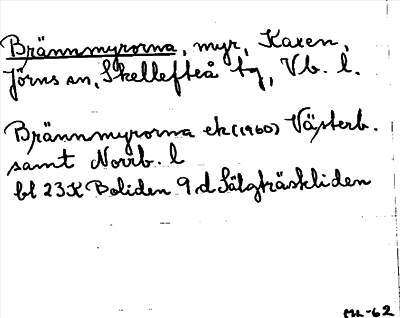 Brännmyrorna, myr, Karen,
Jörns sn, Skellefteå tg, Vb. l.
Brännmyrorna ek (1960) Västerb.
samt Norrb. l
bl 23K Boliden 9d Sälgträskliden
ML-62